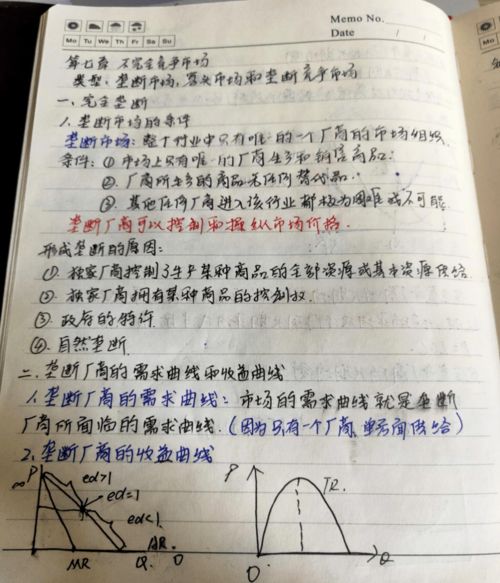 Memo No.
Mo Tu We Th Fr Sa Su
Date / /
第七章 不完全竞争市场
类型：垄断市场，寡头市场和垄断竞争市场
一、完全垄断
1、垄断市场的条件
垄断市场：整个行业中只有唯一的一个厂商的市场组织.
条件：① 市场上只有唯一的厂商生产和销售商品；
②. 厂商所生产的商品无任何替代品.
③. 其他任何厂商进入该行业都极为困难或不可能.
垄断厂商可以控制和操纵市场价格.
形成垄断的原因：
①. 独家厂商控制了生产某种商品的全部资源或基本资源供给
②. 独家厂商拥有某种商品的
③. 政府的特许.
④. 自然垄断.
二、垄断厂商的需求曲线和收益曲线
1、垄断厂商的需求曲线：市场的需求曲线就是垄断
厂商所面临的需求曲线.（因为只有一个厂商,
2. 垄断厂商的收益曲线
∞ P
ed>1
ed=1
ed<1
AR.
MR
Q.
O
P
TR.
Q
O.